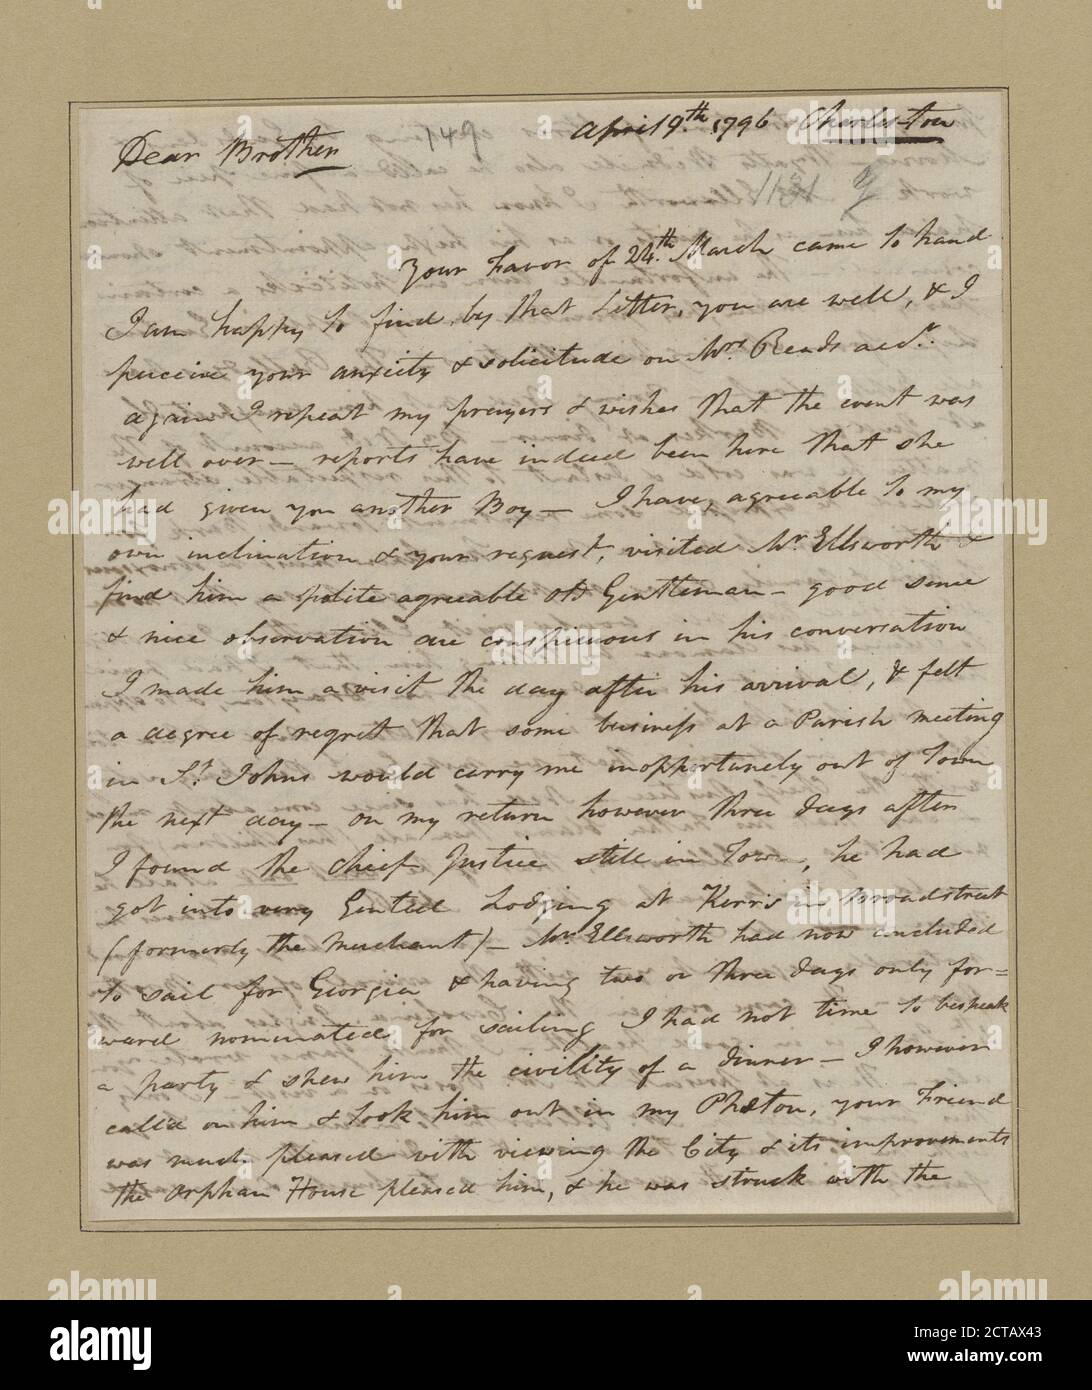 April 9.th 1796 Charles-ton
149
Dear Brother
1131
Your Favor of 24.th March came to hand
I am happy to find, by that Letter, you are well, & I
perceive your anxiety & solicitude on Mrs Reads acct.
again I repeat my prayers & wishes that the event was
well over — reports have indeed been here that she
had given you another Boy — I have, agreeable to my
own inclination & your request, visited Mr Ellsworth &
find him a polite agreeable old Gentleman — good sence
& nice observation are conspicuous in his conversation
I made him a visit the day after his arrival, & felt
a degree of regret that some business at a Parish meeting
in St Johns would carry me inopportunely out of Town
the next day — on my return however three days after
I found the Chief Justice still in Town, he had
got into very Genteel Lodging at Kerr's in broadstreet
(formerly the Merchant) — Mr Ellsworth had now concluded
to sail for Georgia & having two or three days only for=
ward nominated for sailing I had not time to bespeak
a party & shew him the civility of a dinner — I however
called on him & took him out in my Phæton, your Friend
was much pleased with viewing the City & its improvements
the Orphan House pleased him, & he was struck with the
alamy
Image ID: 2CTAX43
www.alamy.com